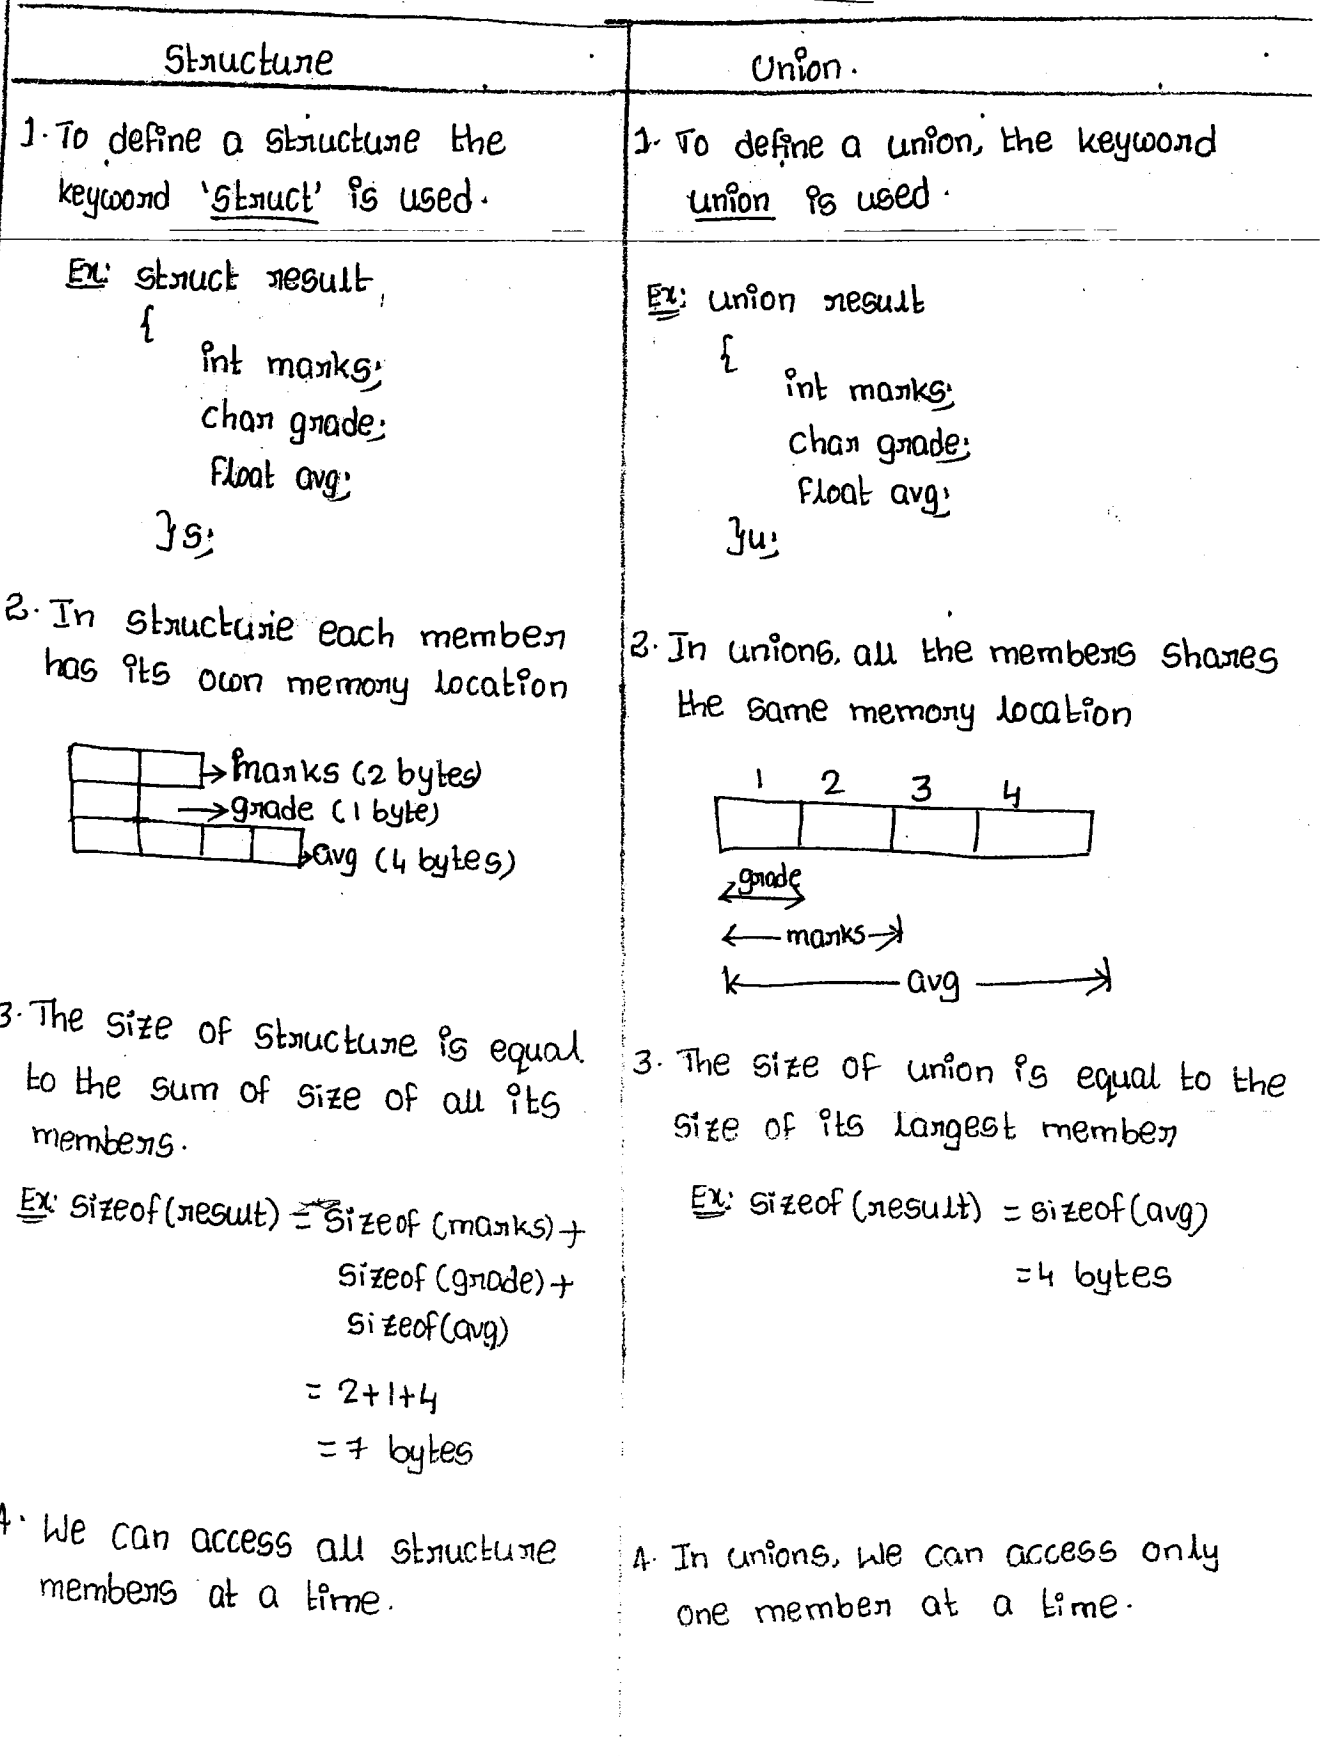 Structure
1. To define a structure the
keyword 'struct' is used.
Ex: struct result
{
int marks;
char grade;
float avg;
}s;
2. In structure each member
has its own memory location
marks (2 bytes)
grade (1 byte)
avg (4 bytes)
3. The size of structure is equal
to the sum of size of all its
members.
Ex: sizeof(result) = sizeof (marks) +
sizeof (grade) +
sizeof (avg)
= 2+1+4
= 7 bytes
4. We can access all structure
members at a time.
Union.
1. To define a union, the keyword
union is used.
Ex: union result
{
int marks;
char grade;
float avg;
}u;
2. In unions, all the members shares
the same memory location
1 2 3 4
grade
marks
avg
3. The size of union is equal to the
size of its largest member
Ex: sizeof (result) = sizeof(avg)
=4 bytes
4. In unions, we can access only
one member at a time.